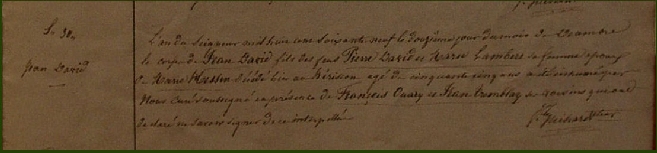 S. 30e
Jean David
L'an du Seigneur mil huit cent soixante neuf le douzième jour du mois de Décembre
le corps de Jean David fils des feus Pierre David et Marie Lambert sa femme époux
de Marie décédé hier au agé de cinquante cinq ans a été inhumé par
Nous Curé soussigné en présence de François Ouary et Jean Tremblay témoins qui ont
déclaré ne savoir signer de ce interpellés